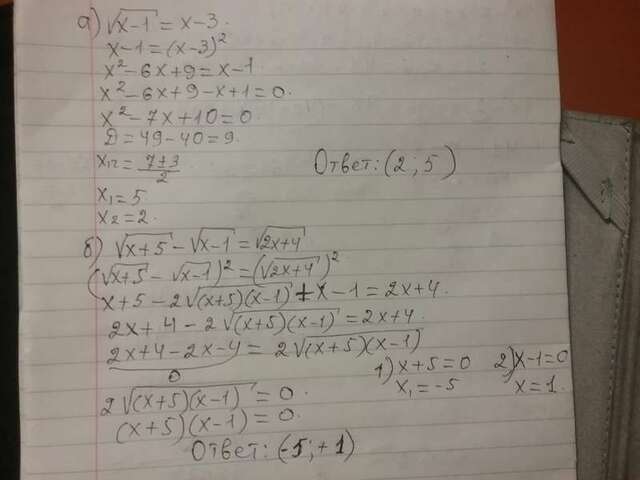 а) √x-1 = x-3.
x-1=(x-3)²
x²-6x+9=x-1.
x²-6x+9-x+1=0.
x²-7x+10=0
D=49-40=9.
x₁₂=7±3/2
Ответ: (2; 5)
x₁=5
x₂=2.
б) √x+5 - √x-1 = √2x+4
(√x+5 - √x-1)²=(√2x+4)²
x+5-2√(x+5)(x-1)+x-1=2x+4.
2x+4-2√(x+5)(x-1)=2x+4.
2x+4-2x-4=2√(x+5)(x-1)
0
1) x+5=0
x₁=-5
2) x-1=0
x=1.
2√(x+5)(x-1)=0.
(x+5)(x-1)=0.
Ответ: (-5; +1)